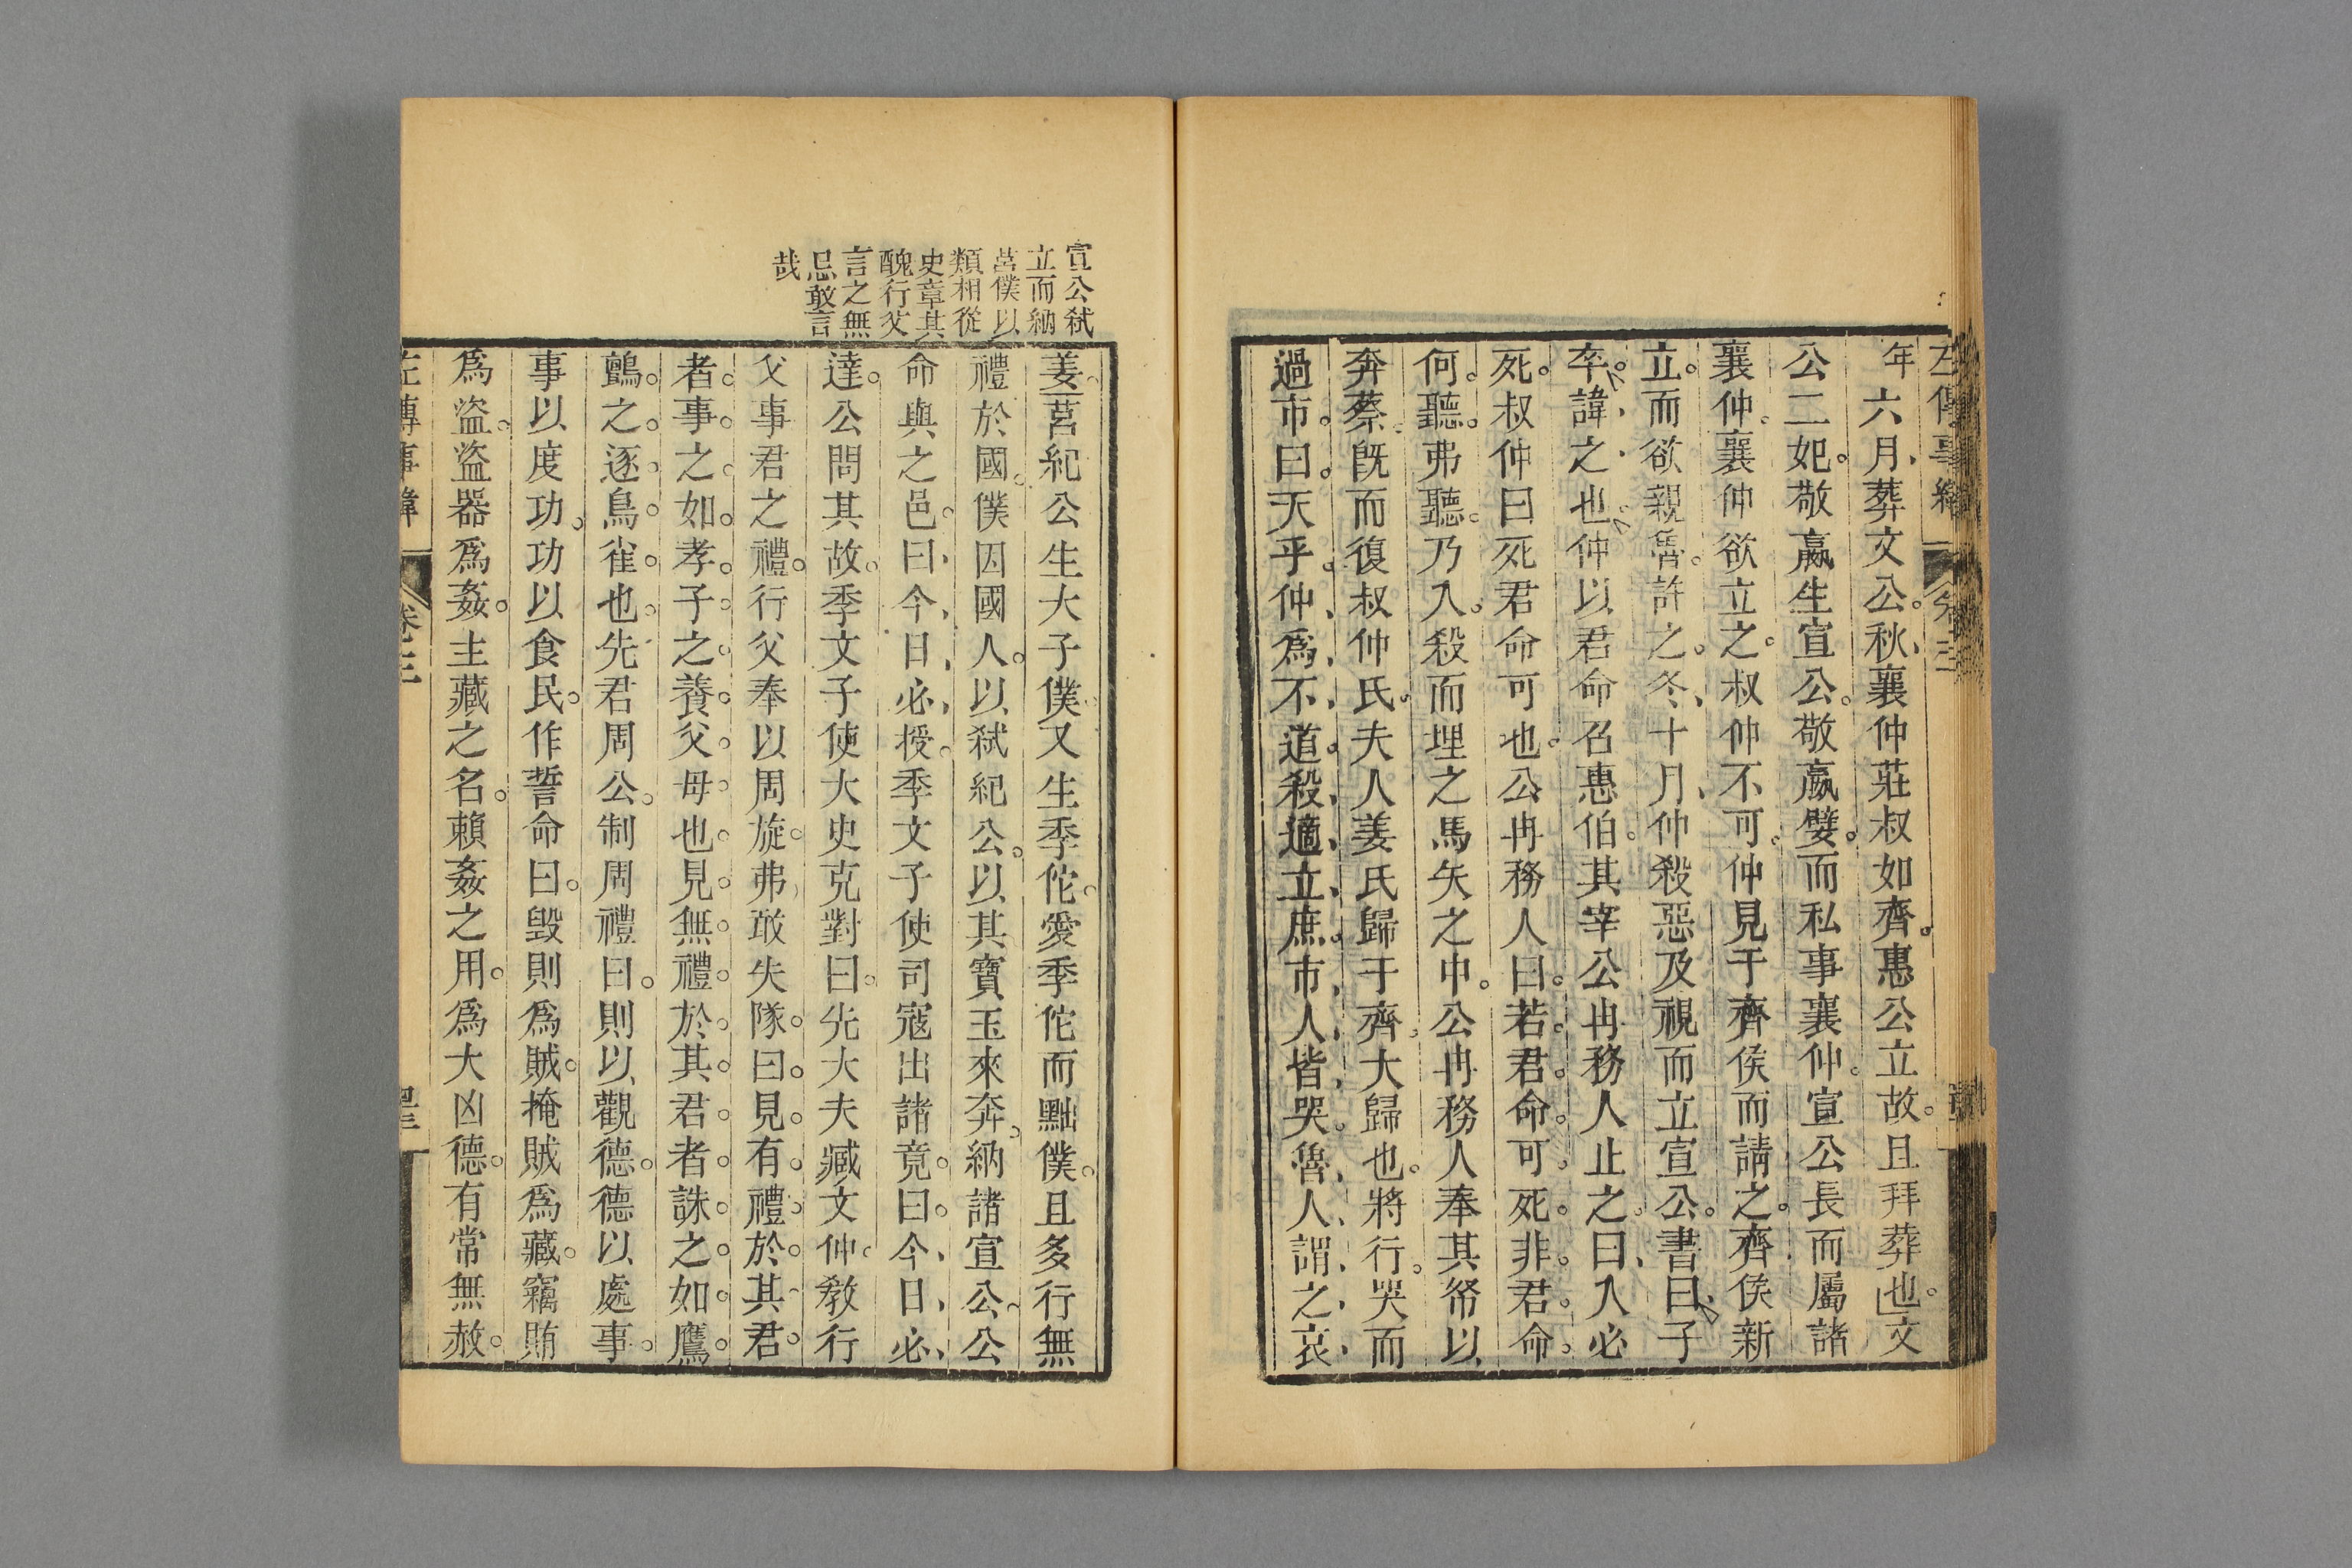 左傳事緯
卷三
年六月葬文公秋襄仲莊叔如齊惠公立故且拜葬也文
公二妃敬嬴生宣公敬嬴嬖而私事襄仲宣公長而屬諸
襄仲襄仲欲立之叔仲不可仲見于齊侯而請之齊侯新
立而欲親魯許之冬十月仲殺惡及視而立宣公書曰子
卒諱之也仲以君命召惠伯其宰公冉務人止之曰入必
死叔仲曰死君命可也公冉務人曰若君命可死非君命
何聽弗聽乃入殺而埋之馬矢之中公冉務人奉其帑以
奔蔡既而復叔仲氏夫人姜氏歸于齊大歸也將行哭而
過市曰天乎仲爲不道殺適立庶市人皆哭魯人謂之哀
宣公弑
立而納
莒僕以
類相從
史章其
醜行父
言之無
忌敢言
哉
姜莒紀公生大子僕又生季佗愛季佗而黜僕且多行無
禮於國僕因國人以弑紀公以其寶玉來奔納諸宣公公
命與之邑曰今日必授季文子使司寇出諸竟曰今日必
達公問其故季文子使大史克對曰先大夫臧文仲教行
父事君之禮行父奉以周旋弗敢失隊曰見有禮於其君
者事之如孝子之養父母也見無禮於其君者誅之如鷹
鸇之逐鳥雀也先君周公制周禮曰則以觀德德以處事
事以度功功以食民作誓命曰毀則爲賊掩賊爲藏竊賄
爲盜盜器爲姦主藏之名賴姦之用爲大凶德有常無赦
左傳事緯
卷三